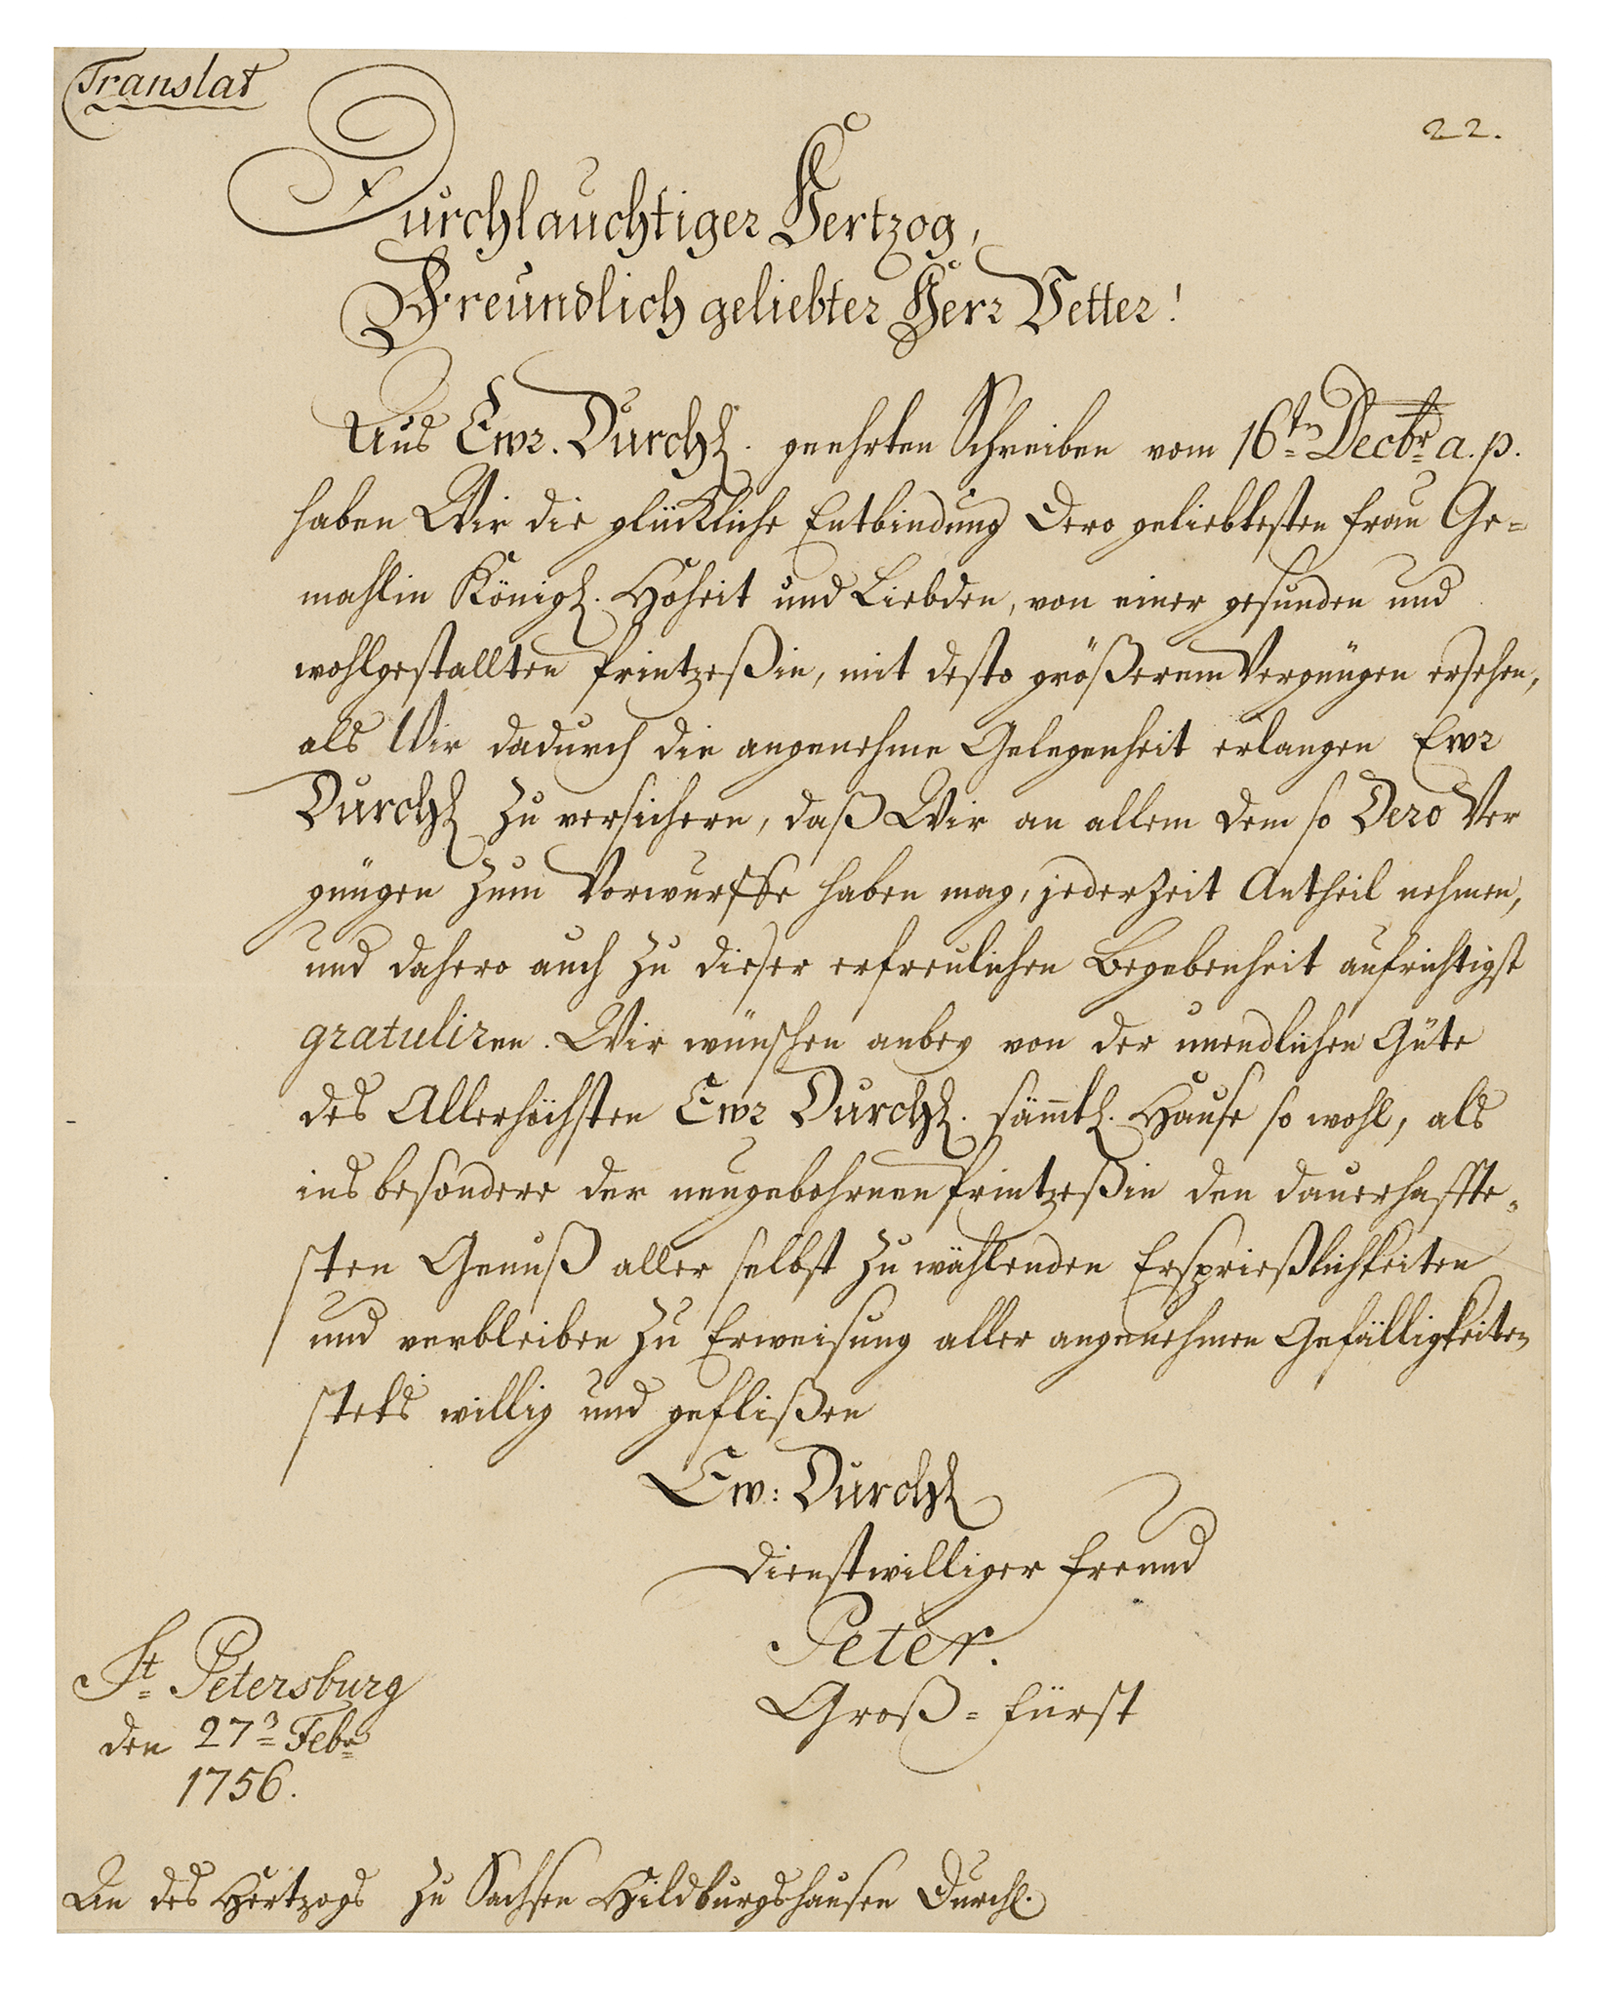 Translat
22.
Durchlauchtiger Hertzog,
Freundlich geliebter Herr Vetter!
Aus Ewr. Durchl. geehrten Schreiben vom 16tn Decbr a. p.
haben Wir die glückliche Entbindung Dero geliebtesten Frau Ge=
mahlin Königl. Hoheit und Liebden, von einer gesunden und
wohlgestallten Printzeßin, mit desto größerem Vergnügen ersehen,
als Wir dadurch die angenehme Gelegenheit erlangen Ewr
Durchl zu versichern, daß Wir an allem dem so Dero Ver
gnügen zum Vorwurffe haben mag, jederzeit Antheil nehmen,
und dahero auch zu dieser erfreulichen Begebenheit aufrichtigst
gratuliren. Wir wünschen anbey von der unendlichen Güte
des Allerhöchsten Ewr Durchl. sämmtl. Hause so wohl, als
ins besondere der neugebohrnen Printzeßin den dauerhaffte=
sten Genuß aller selbst zu wählenden Ersprießlichkeiten
und verbleiben zu Erweisung aller angenehmen Gefälligkeiten
stets willig und geflißen
Ew: Durchl
dienstwilliger Freund
Peter.
Groß=Fürst
St. Petersburg
den 27 Febr
1756.
An des Hertzogs zu Sachsen Hildburgshausen Durchl.